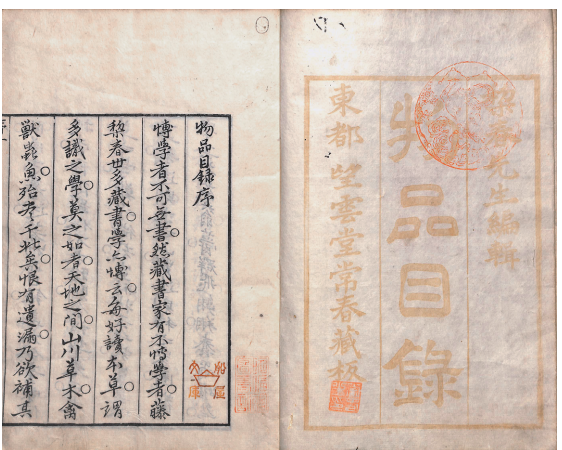 棃春先生編輯
物品目錄
東都 望雲堂常春藏板
物品目録序
博學者不可無書然藏書家有不博學者藤
棃春世多藏書學亦博云每好讀本草謂
多識之學莫之如者天地之間山川草木禽
獸蟲魚殆盡于此矣恨有遺漏乃欲補其